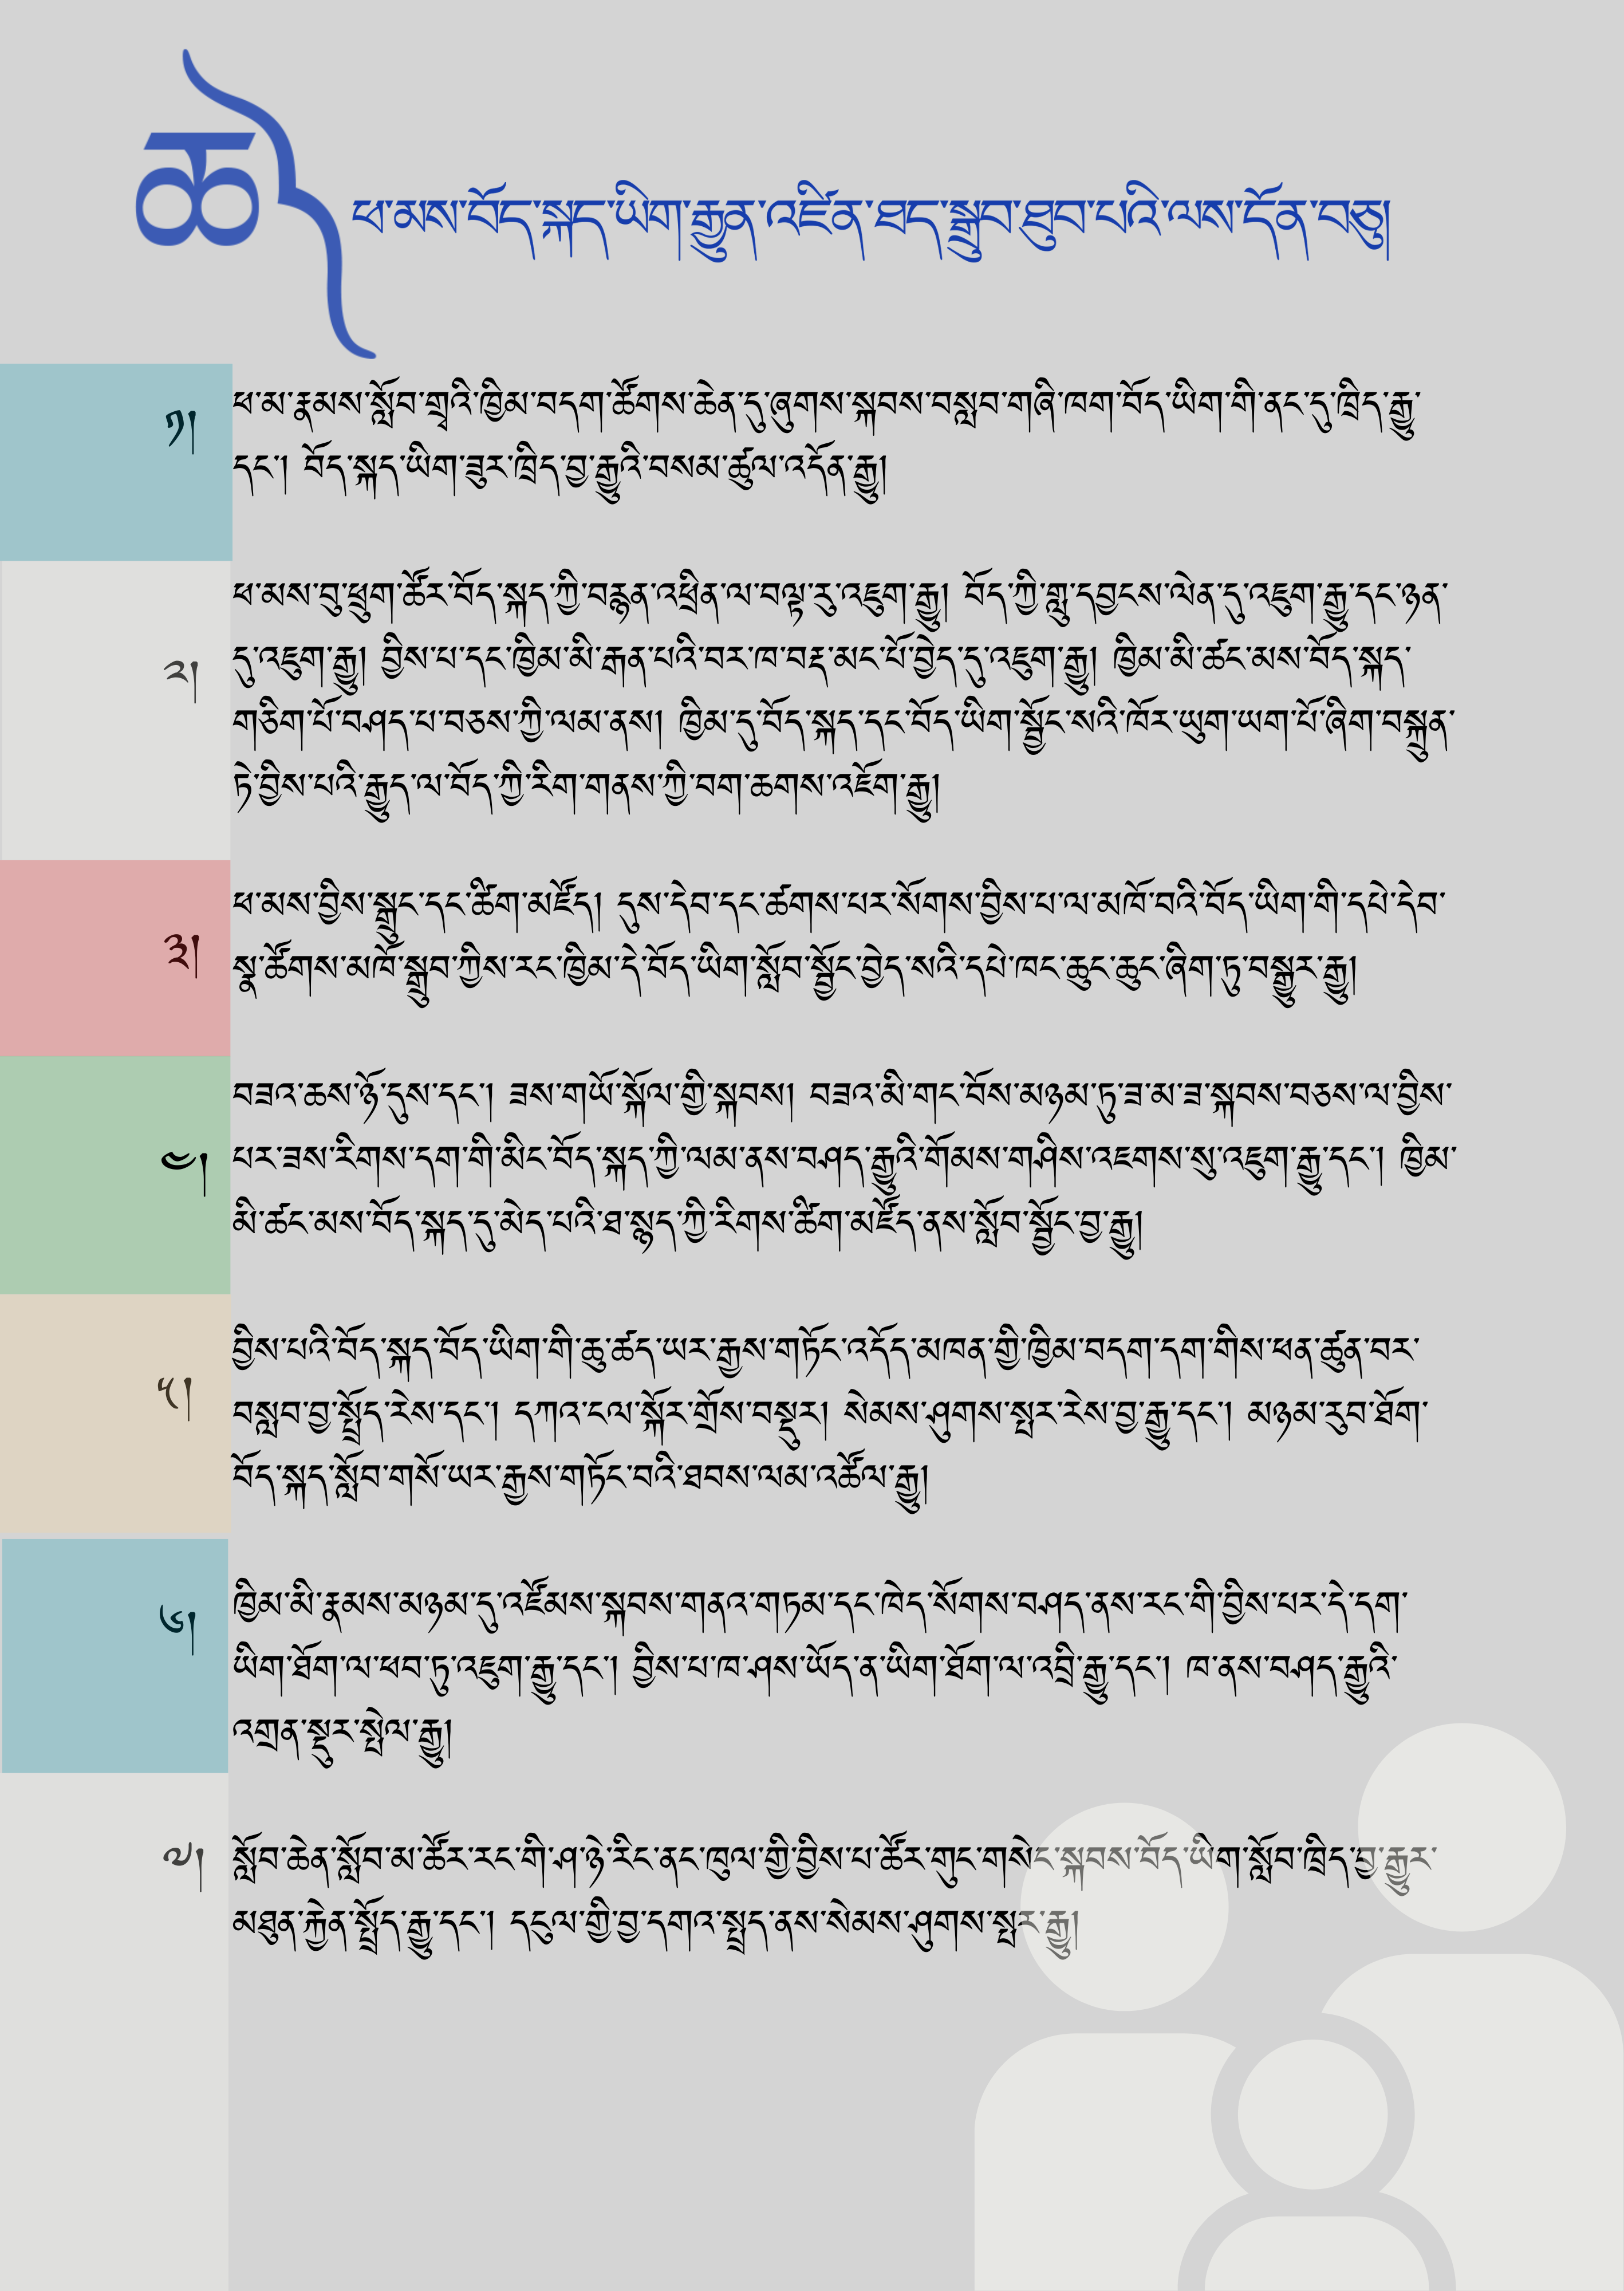 ཚེ
ཕ་མས་བོད་སྐད་ཡིག་རྒྱུན་འཛིན་ཐད་སྒྲུབ་ཐུབ་པའི་ལས་དོན་བཅུ།
༡། ཕ་མ་རྣམས་སློབ་གྲྭའི་ཁྱིམ་བདག་ཚོགས་ཆེན་དུ་ཞུགས་སྐབས་བསླབ་གཞི་ཁག་བོད་ཡིག་གི་ནང་དུ་ཁྲིད་རྒྱུ་
དང་། བོད་སྐད་ཡིག་ཟུར་ཁྲིད་བྱ་རྒྱུའི་བསམ་ཚུལ་འདོན་རྒྱུ།
༢། ཕ་མས་བུ་ཕྲུག་ཚོར་བོད་སྐད་ཀྱི་བརྙན་འཕྲིན་ལ་བལྟ་རུ་འཇུག་རྒྱུ། བོད་ཀྱི་གླུ་དབྱངས་ལེན་དུ་འཇུག་རྒྱུ་དང་ཉན་
དུ་འཇུག་རྒྱུ། བྱིས་པ་དང་ཁྱིམ་མི་རྒན་པའི་བར་ཁ་བརྡ་མང་པོ་བྱེད་དུ་འཇུག་རྒྱུ། ཁྱིམ་མི་ཚང་མས་བོད་སྐད་
གཅིག་པོ་བཤད་པ་བཅས་ཀྱི་ལམ་ནས། ཁྱིམ་དུ་བོད་སྐད་དང་བོད་ཡིག་སྦྱོང་སའི་ཁོར་ཡུག་ཡག་པོ་ཞིག་བསྐྲུན་
ཏེ་བྱིས་པའི་རྒྱུད་ལ་བོད་ཀྱི་རིག་གནས་ཀྱི་བག་ཆགས་འཇོག་རྒྱུ།
༣། ཕ་མས་བྱིས་སྒྲུང་དང་ཚིག་མཛོད། དུས་དེབ་དང་ཚགས་པར་སོགས་བྱིས་པ་ལ་མཁོ་བའི་བོད་ཡིག་གི་དཔེ་དེབ་
སྣ་ཚོགས་མཁོ་སྒྲུབ་ཀྱིས་རང་ཁྱིམ་དེ་བོད་ཡིག་སློབ་སྦྱོང་བྱེད་སའི་དཔེ་ཁང་ཆུང་ཆུང་ཞིག་ཏུ་བསྒྱུར་རྒྱུ།
༤། བཟའ་ཆས་ཉོ་དུས་དང་། ཟས་གཡོ་སྐོལ་གྱི་སྐབས། བཟའ་མི་གང་བོས་མཉམ་ཏུ་ཟ་མ་ཟ་སྐབས་བཅས་ལ་བྱིས་
པར་ཟས་རིགས་དག་གི་མིང་བོད་སྐད་ཀྱི་ལམ་ནས་བཤད་རྒྱུའི་གོམས་གཤིས་འཇགས་སུ་འཇུག་རྒྱུ་དང་། ཁྱིམ་
མི་ཚང་མས་བོད་སྐད་དུ་མེད་པའི་ཐ་སྙད་ཀྱི་རིགས་ཚིག་མཛོད་ནས་སློབ་སྦྱོང་བྱ་རྒྱུ།
༥། བྱིས་པའི་བོད་སྐད་བོད་ཡིག་གི་ཆུ་ཚད་ཡར་རྒྱས་གཏོང་འདོད་མཁན་གྱི་ཁྱིམ་བདག་དག་གིས་ཕན་ཚུན་བར་
བསླབ་བྱ་སྤྲོད་རེས་དང་། དཀའ་ངལ་སྐོར་གྲོས་བསྡུར། སེམས་ཤུགས་སྤར་རེས་བྱ་རྒྱུ་དང་། མཉམ་རུབ་ཐོག་
བོད་སྐད་སློབ་གསོ་ཡར་རྒྱས་གཏོང་བའི་ཐབས་ལམ་འཚོལ་རྒྱུ།
༦། ཁྱིམ་མི་རྣམས་མཉམ་དུ་འཛོམས་སྐབས་གནའ་གཏམ་དང་ཁེད་སོགས་བཤད་ནས་རང་གི་བྱིས་པར་དེ་དག་
ཡིག་ཐོག་ལ་ཕབ་ཏུ་འཇུག་རྒྱུ་དང་། བྱིས་པ་ཁ་ཤས་ཡོད་ན་ཡིག་ཐོག་ལ་འབྲི་རྒྱུ་དང་། ཁ་ནས་བཤད་རྒྱུའི་
འགྲན་སྡུར་སྤེལ་རྒྱུ།
༧། སློབ་ཆེན་སློབ་མ་ཚོར་རང་གི་ཤ་ཉེ་རིང་ནང་ཁུལ་གྱི་བྱིས་པ་ཚོར་གུང་གསེང་སྐབས་བོད་ཡིག་སློབ་ཁྲིད་བྱ་རྒྱུར་
མཐུན་རྐྱེན་སྤྲོད་རྒྱུ་དང་། དངུལ་གྱི་བྱ་དགའ་སྤྲད་ནས་སེམས་ཤུགས་སྤར་རྒྱུ།